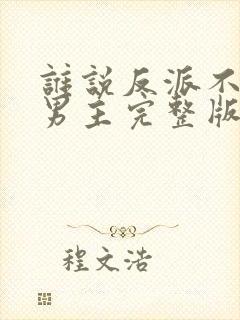 誰說反派不
男主完整版
程文浩